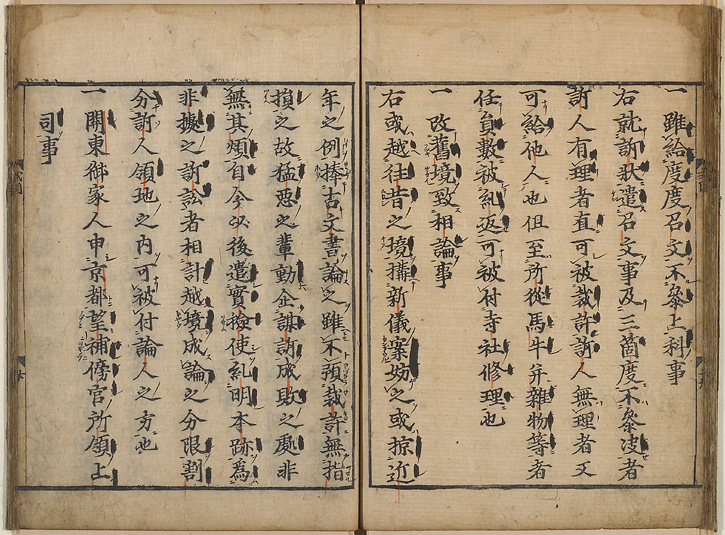 一雖給度度召文不參上科事
右就訴狀遣召文事及三箇度不參决者
訴人有理者直可被裁許訴人無理者又
可給他人也但至所從馬牛并雜物等者
任員數被糺返可被付寺社修理也
一改舊境致相論事
右或越往昔之境搆新儀案妨之或掠近
年之例捧古文書論之雖不預裁許無指
損之故猛惡之輩動企謀訴成敗之處非
無其煩自今以後遣實撿使糺明本跡爲
非據之訴訟者相計越境成論之分限割
分訴人領地之内可被付論人之方也
一關東御家人申京都望補傍官所領上
司事